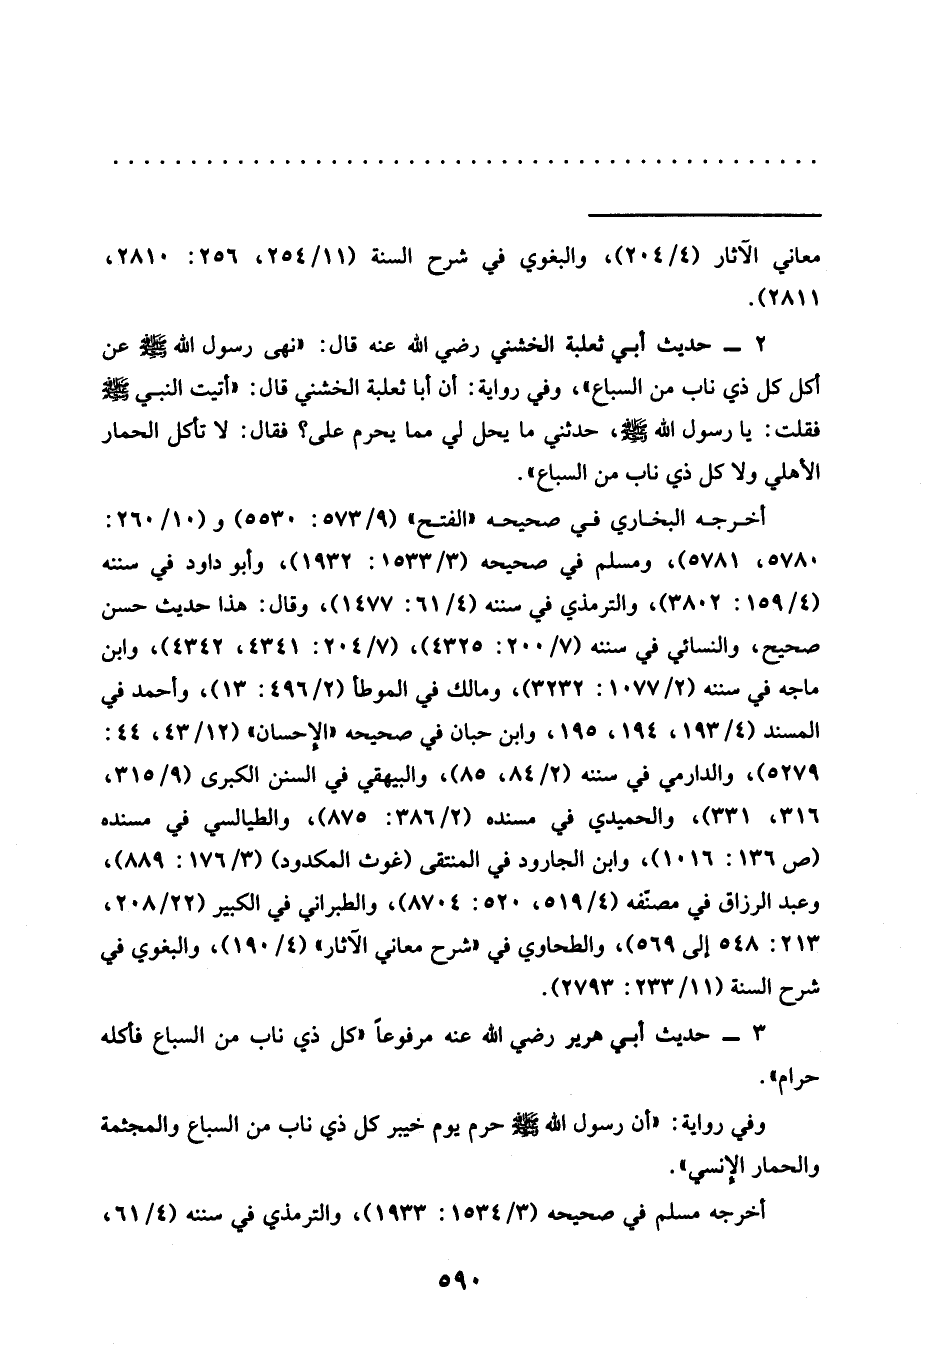 . . . . . . . . . . . . . . . . . . . . . . . . . . . . . . . . . . . . . . . . . . . . .
معاني الآثار (٢٠٤/٤)، والبغوي في شرح السنة (٢٥٤/١١، ٢٥٦: ٢٨١٠،
٢٨١١).
٢ ـ حديث أبي ثعلبة الخشني رضي الله عنه قال: «نهى رسول الله ﷺ عن
أكل كل ذي ناب من السباع»، وفي رواية: أن أبا ثعلبة الخشني قال: «أتيت النبي ﷺ
فقلت: يا رسول الله ﷺ، حدثني ما يحل لي مما يحرم على؟ فقال: لا تأكل الحمار
الأهلي ولا كل ذي ناب من السباع».
أخرجه البخاري في صحيحه «الفتح» (٥٧٣/٩: ٥٥٣٠) و (٢٦٠/١٠:
٥٧٨٠، ٥٧٨١)، ومسلم في صحيحه (١٥٣٣/٣: ١٩٣٢)، وأبو داود في سننه
(١٥٩/٤: ٣٨٠٢)، والترمذي في سننه (٦١/٤: ١٤٧٧)، وقال: هذا حديث حسن
صحيح، والنسائي في سننه (٢٠٠/٧: ٤٣٢٥)، (٢٠٤/٧: ٤٣٤١، ٤٣٤٢)، وابن
ماجه في سننه (١٠٧٧/٢: ٣٢٣٢)، ومالك في الموطأ (٤٩٦/٢: ١٣)، وأحمد في
المسند (١٩٣/٤، ١٩٤، ١٩٥، وابن حبان في صحيحه «الإحسان» (٤٣/١٢، ٤٤:
٥٢٧٩)، والدارمي في سننه (٨٤/٢، ٨٥)، والبيهقي في السنن الكبرى (٣١٥/٩،
٣١٦، ٣٣١)، والحميدي في مسنده (٣٨٦/٢: ٨٧٥)، والطيالسي في مسنده
(ص ١٣٦: ١٠١٦)، وابن الجارود في المنتقى (غوث المكدود) (١٧٦/٣: ٨٨٩)،
وعبد الرزاق في مصنّفه (٥١٩/٤، ٥٢٠: ٨٧٠٤)، والطبراني في الكبير (٢٠٨/٢٢،
٢١٣: ٥٤٨ إلى ٥٦٩)، والطحاوي في «شرح معاني الآثار» (١٩٠/٤)، والبغوي في
شرح السنة (٢٣٣/١١: ٢٧٩٣).
٣ ـ حديث أبي هرير رضي الله عنه مرفوعاً «كل ذي ناب من السباع فأكله
حرام».
وفي رواية: «أن رسول الله ﷺ حرم يوم خيبر كل ذي ناب من السباع والمجثمة
والحمار الإنسي».
أخرجه مسلم في صحيحه (١٥٣٤/٣: ١٩٣٣)، والترمذي في سننه (٦١/٤،
٥٩٠